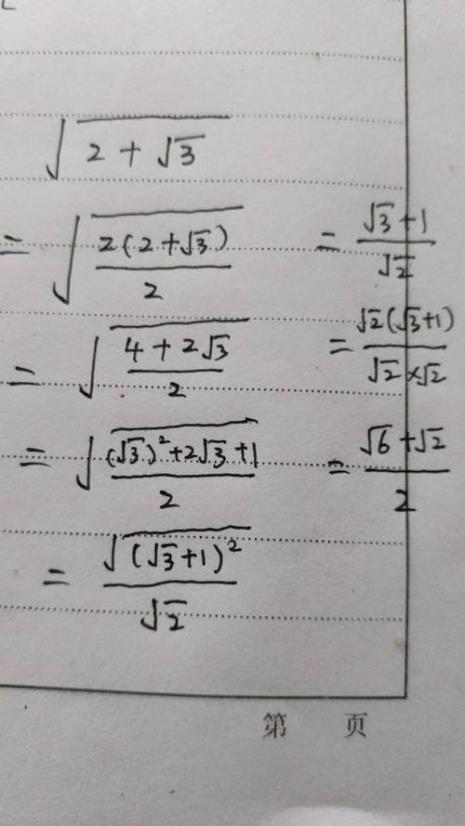 √(2 + √3)
= √(2(2+√3)/2)
= √((4 + 2√3)/2)
= √(((√3)²+2√3+1)/2)
= √((√3+1)²)/√2
= (√3+1)/√2
= √2(√3+1)/(√2×√2)
= (√6+√2)/2
第 页